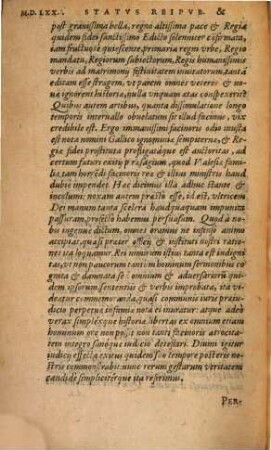 M.D.LXX.. STATVS REIPVB. &
post gravissima bella, regno altissima pace & Regia
quidem fidei sanctissimo Edicto solenniter cōfirmata,
iam fluctuāte quiescente, primaria regni vrbe, Regio
mandato, Regiorum subiectorum, Regis humanissimis
verbis ad matrimonij festiuitatem inuitatorum tanta
editam esse stragem, vt parem omnes veteres & no-
ua ignorent historiæ, nulla vnquam ætas conspexerit.
Quibus autem artibus, quanta dissimulatione longo
temporis interuallo obuelatum sit illud facinus, vix
credibile est. Ergo immanissimi facinoris odio inusta
est nota nomini Gallico nunquam semperue, & Re-
giæ fidei prostituta profligataque est auctoritas, ac
certum futuri exitij præsagium, quod Valesiæ fami-
liæ, tam horrēdi facinoris reo & illius ministris haud
dubiè impendet. Hoc diximus illa adhuc stante &
incolumi: noxam autem præsto esse, id est, vltricem
Dei manum tanta scelera haud quaquam impunita
passuram, profecto habemus persuasum. Quod à no-
bis ingenuè dictum, omnes oramus ne infenso animo
accipiat, quasi præter officij & instituti nostri ratio-
nes ita loquamur. Rei nimirum istius tanta est indigni-
tas, vt non paucorum tantùm hominum sermonibus co-
gnita & damnata sit omnium & aduersariorum qui-
dem ipsorum sententiis & verbis improbata, sta vi-
deatur cōmemorāda, quasi communis iuris præiu-
dicio perpetua infamiæ nota ei inuratur: atque adeò
veræ simplexque historiæ libertas ex omnium etiam
hominum ore non possit non tanti facinoris atrocita-
tem integro sanoque iudicio detestari. Dium igitur
iudicij effectū exitus quidem suo tempore posteris no-
stris commonstrabit: nunc rerum gestarum veritatem
candidè simpliciterque ita referimus.
PER-